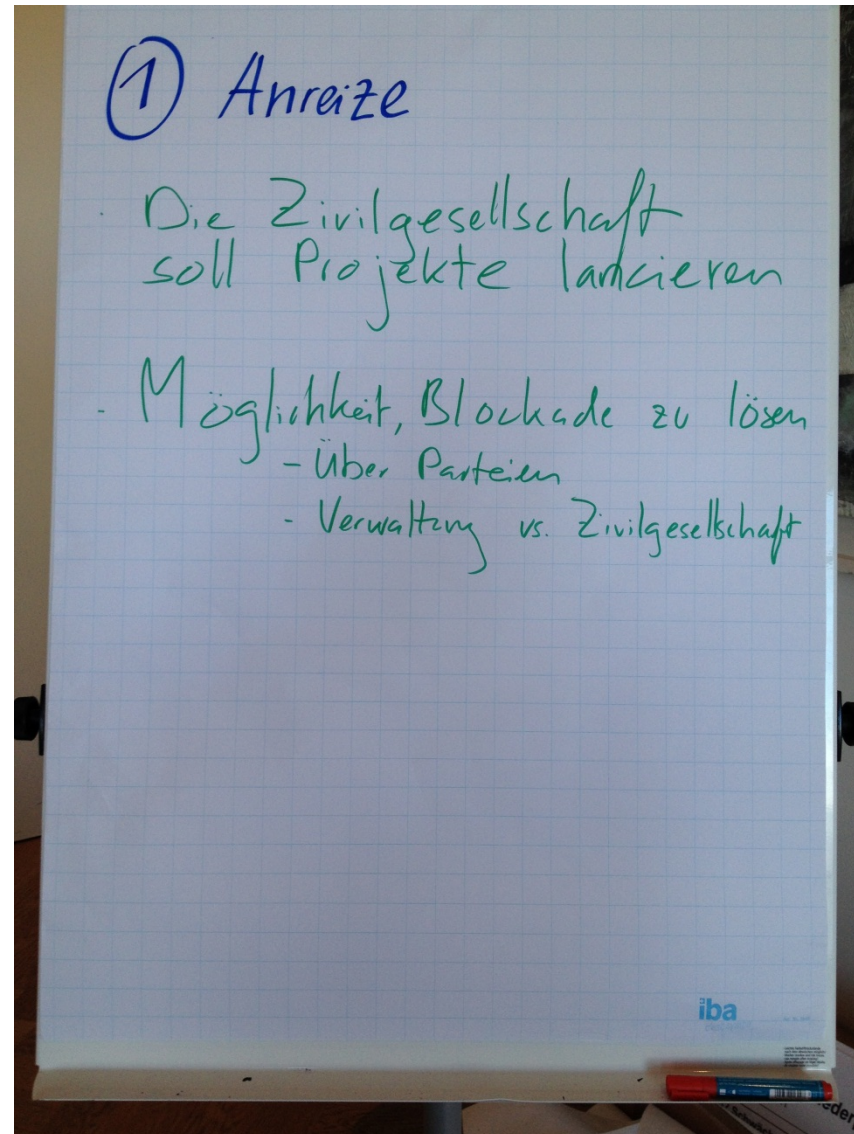 ① Anreize
· Die Zivilgesellschaft
soll Projekte lancieren
- Möglichkeit, Blockade zu lösen
- Über Parteien
- Verwaltung vs. Zivilgesellschaft
iba